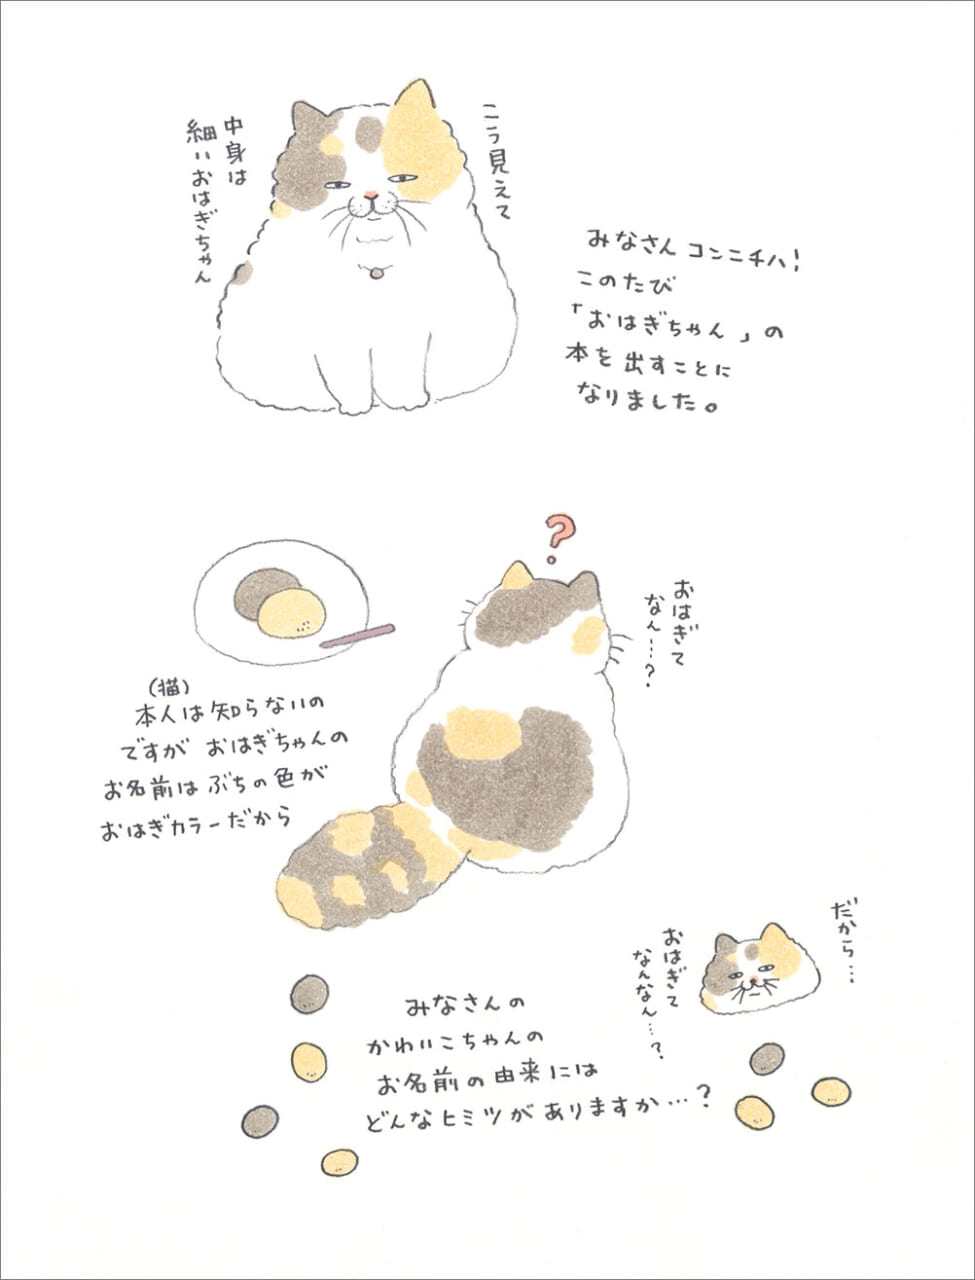 こう見えて
中身は
細いおはぎちゃん
みなさん コンニチハ!
このたび
「おはぎちゃん」の
本を出すことに
なりました。
?
おはぎて
なん…?
(猫)
本人は知らないの
ですが おはぎちゃんの
お名前は ぶちの色が
おはぎカラーだから
だから…
おはぎて
なんなん…?
みなさんの
かわいこちゃんの
お名前の由来には
どんなヒミツがありますか…?